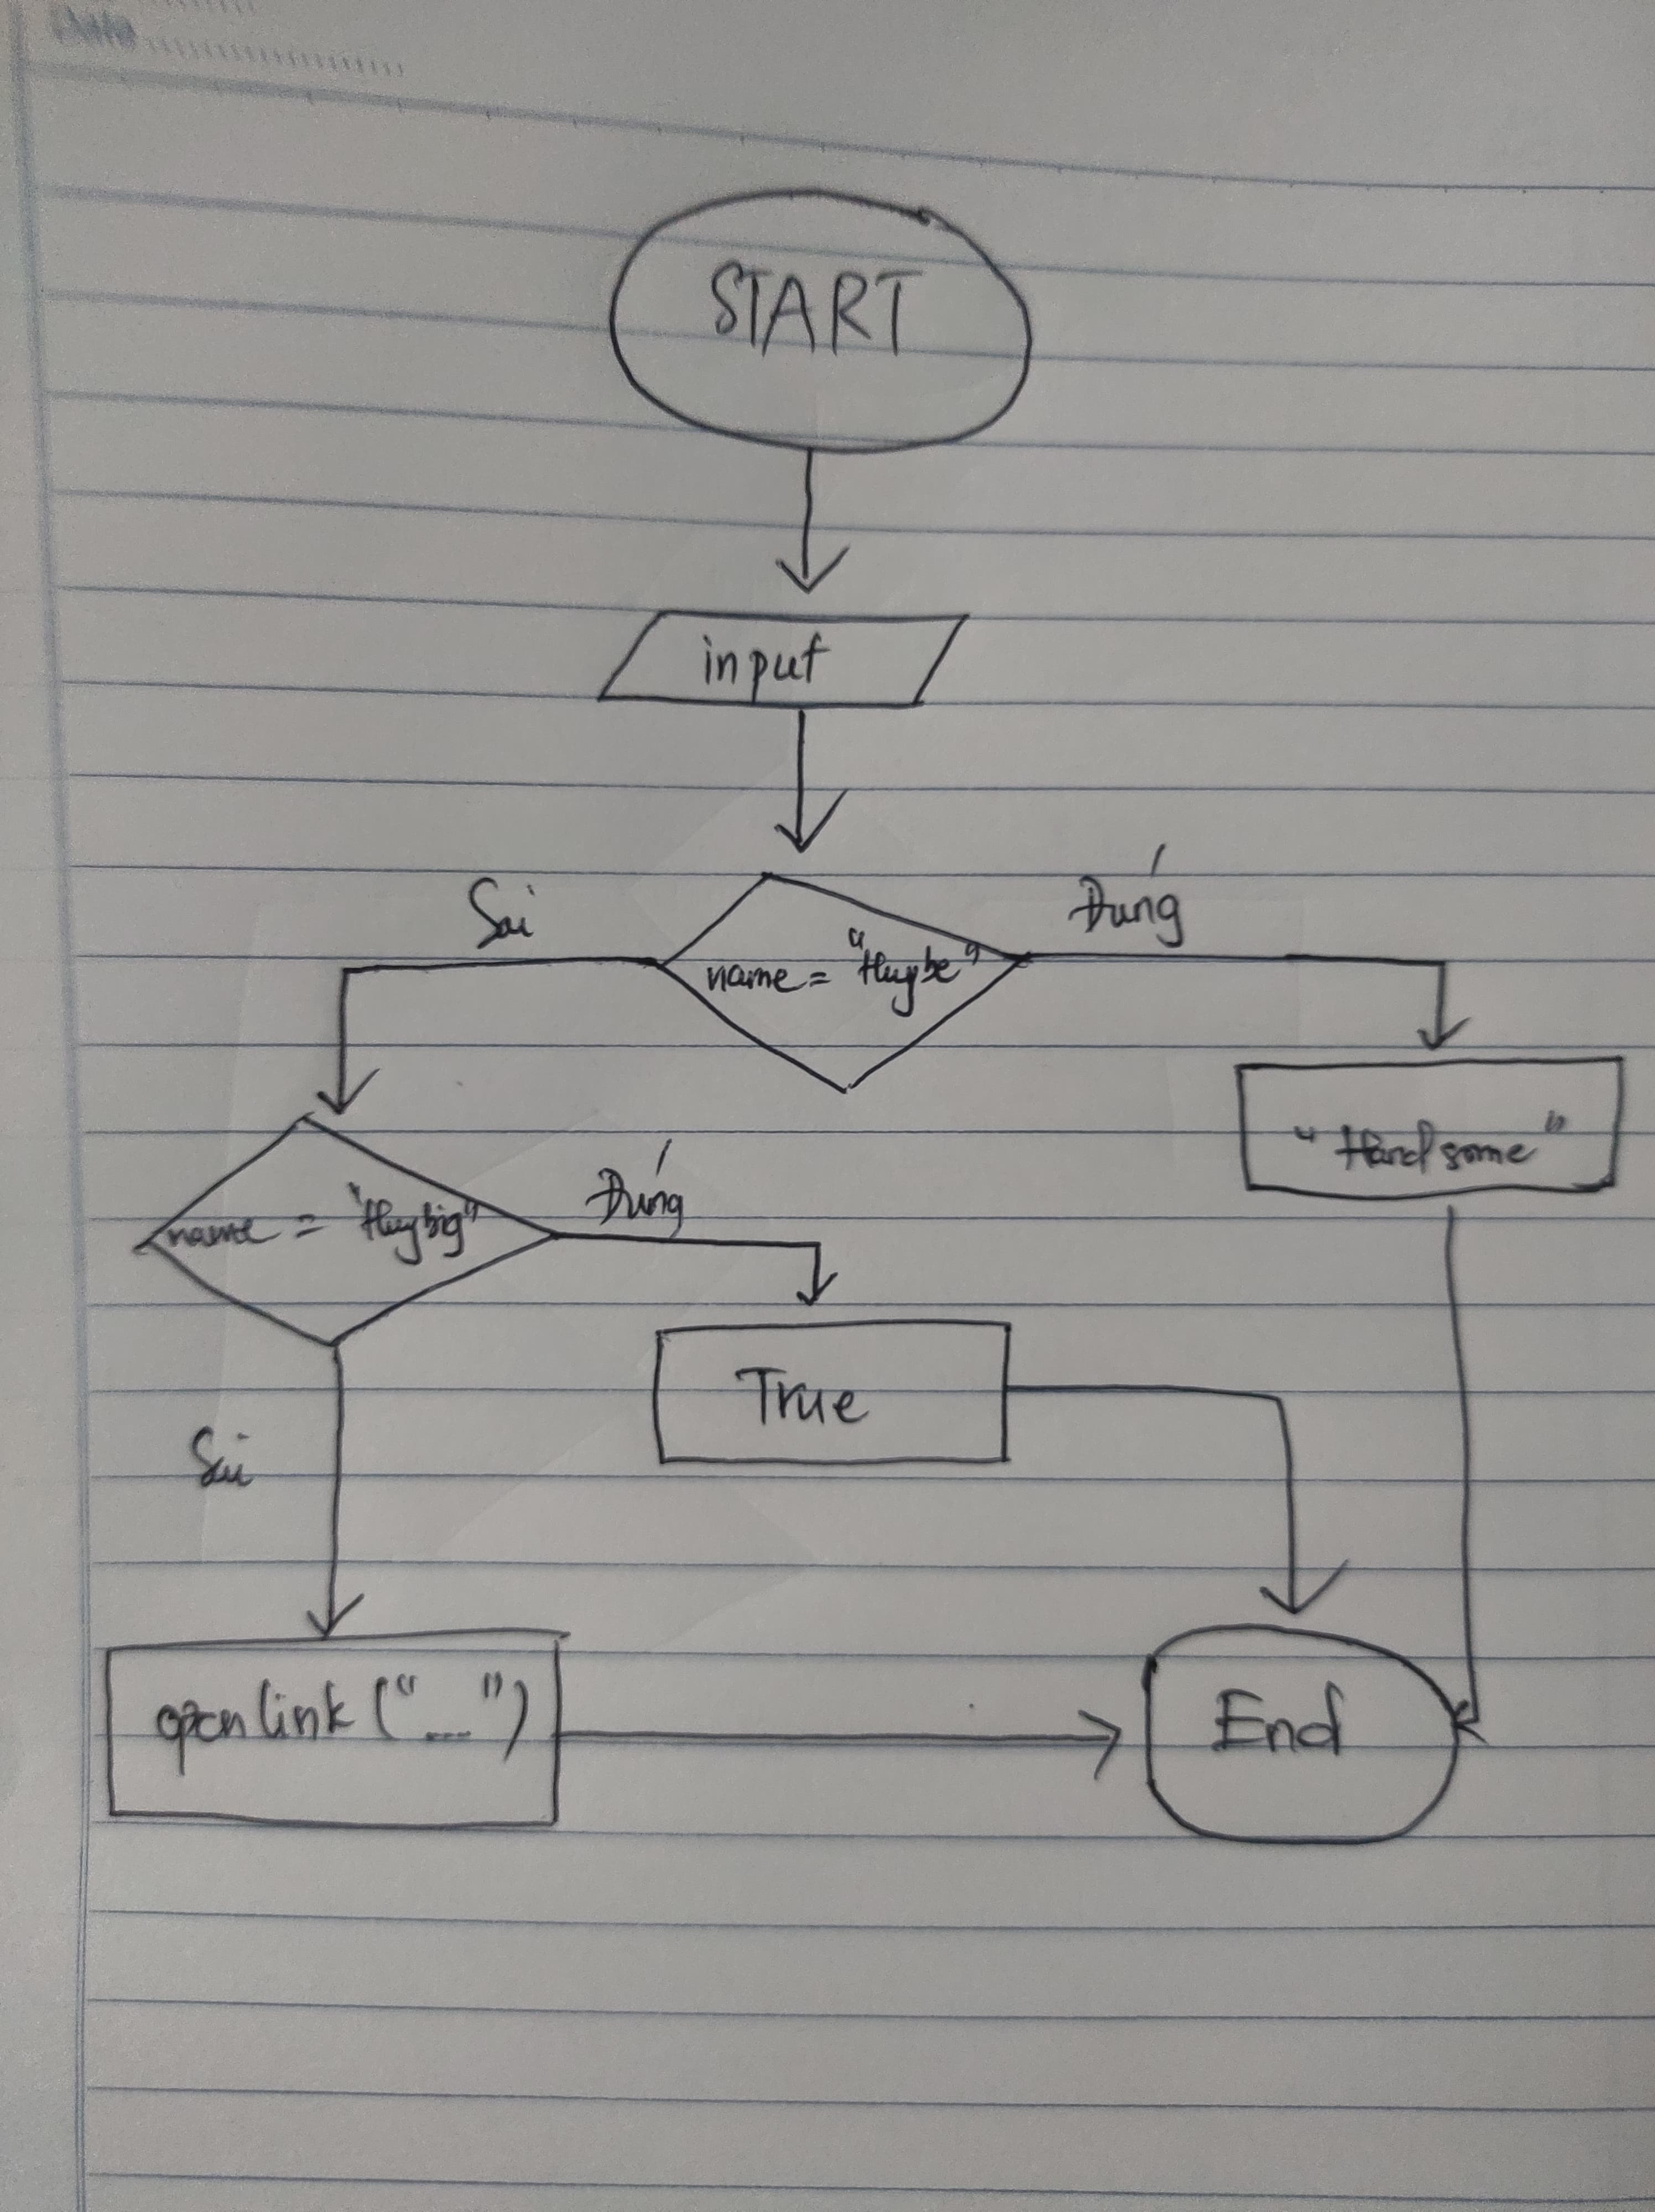 Date
START
input
Sai
Đúng
name = "Huybe"
"Handsome"
name = "Huybig"
Đúng
True
Sai
open link ("...")
End